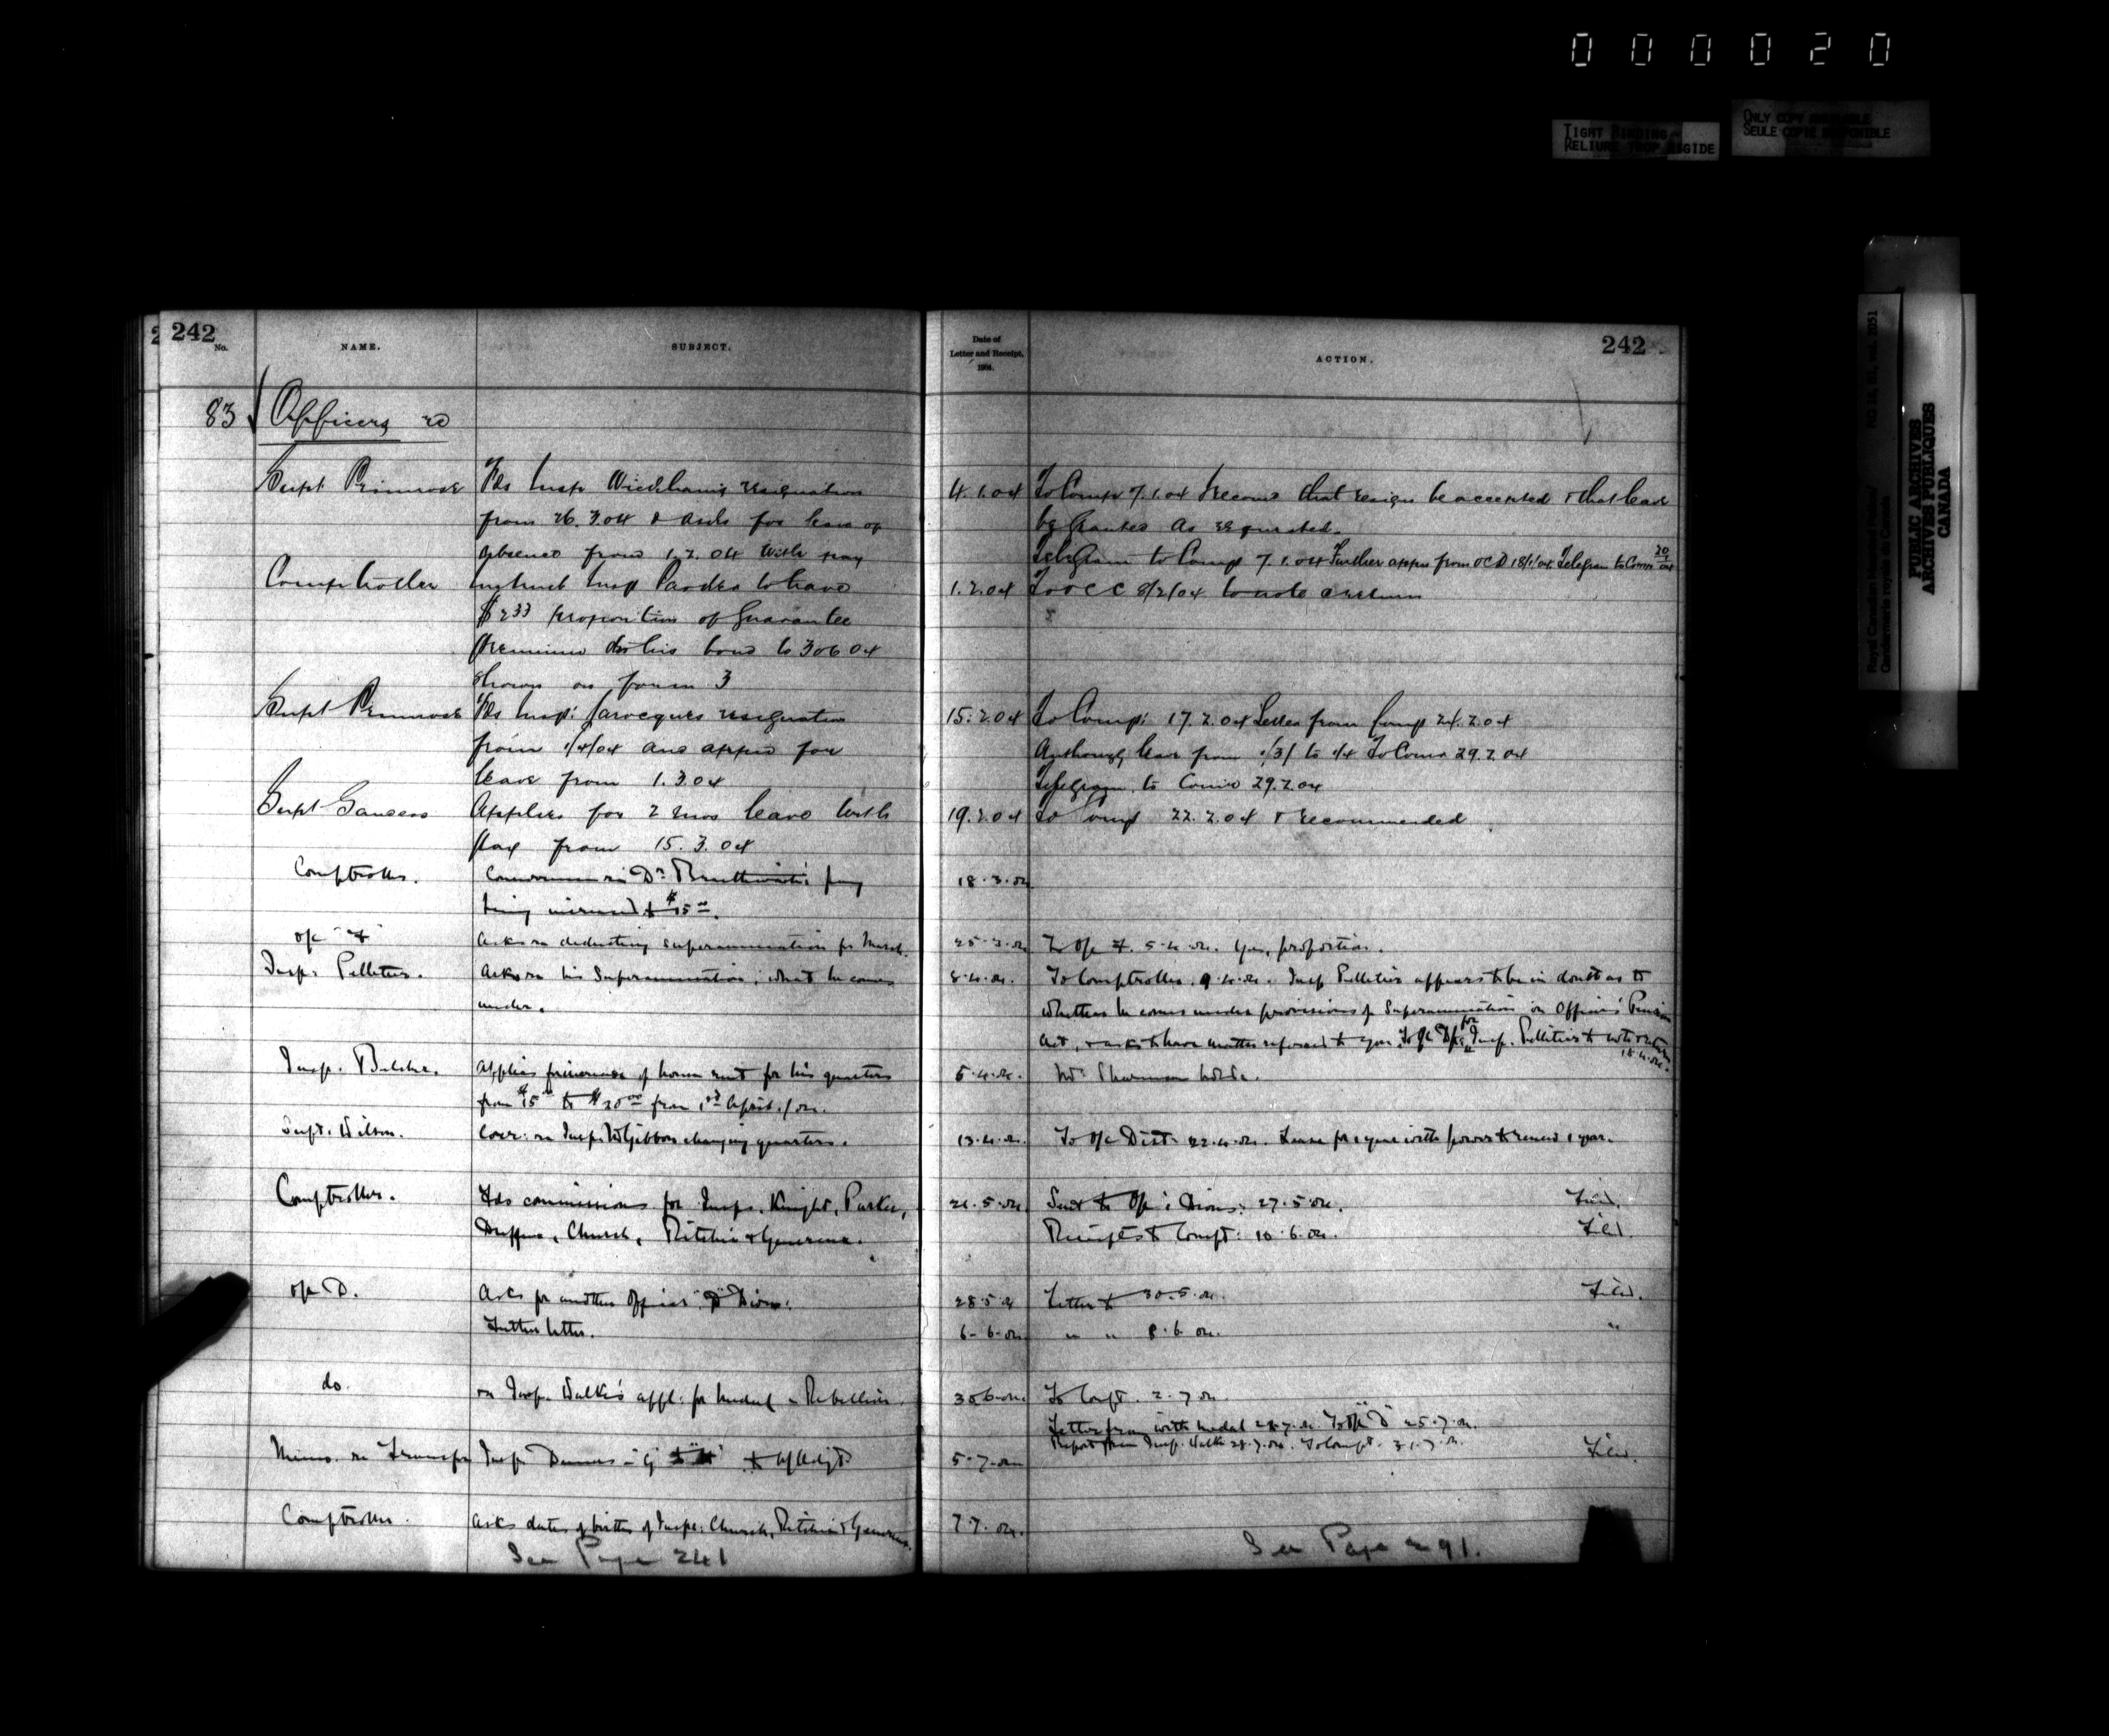 000020
TIGHT BINDING
RELIURE TROP RIGIDE
ONLY COPY AVAILABLE
SEULE COPIE DISPONIBLE
PUBLIC ARCHIVES
ARCHIVES PUBLIQUES
CANADA
Royal Canadian Mounted Police/
Gendarmerie royale du Canada
242
No.
NAME.
SUBJECT.
Date of
Letter and Receipt,
1904.
ACTION.
242
83 Officers re
Supt Primrose
Fds Insp Wickham's resignation
from 26.3.04 & asks for leave of
absence from 1.2.04 with pay
4.1.04
To Compt 7.1.04 Recoms that resign be accepted & that leave
be granted as requested.
Telegram to Comp 7.1.04 Further appn from OC D 18/1/04 Telegram to Com
Comptroller
Instruct Insp to have
$2 33 proportion of Guarantee
Premium on his bond to 30 6 04
shown on form 3
1.2.04
To OC C 8/2/04 to note & return
Supt Primrose
Fds Insp: Jarocques resignation
from 1/4/04 and appn for
leave from 1.3.04
15.2.04
To Comp: 17.2.04 Letter from Comp 24.2.04
leave from 1/3/ to 1/4 To Comr 29.2.04
Telegram to Comr 29.2.04
Supt Sanders
Applies for 2 mos leave with
pay from 15.3.04
19.2.04
To Comp 22.2.04 & recommended
Comptroller.
re Dr. Braithwaite's pay
being increased to $15.00.
18.3.04
o/c "F"
Asks re deducting superannuation for March.
25.3.04
To O/c F. 5.4.04. Yes, proportion.
Insp. Pelletier.
Asks re his Superannuation, what he comes
under.
8.4.04.
To Comptroller. 9.4.04. Insp Pelletier appears to be in doubt as to
whether he comes under provisions of Superannuation or Officers' Pension
Act, & asks to have matter referred to you. To O/c for Insp. Pelletier to note & return
18.4.04.
Insp. Belcher.
Applies for increase of house rent for his quarters
from $15.00 to $20.00 from 1st April/04.
5.4.04.
Mr. Sharman
Supt. Wilson.
Corr: re Insp. McGibbon changing quarters.
13.4.04.
To O/c Dist: 22.4.04. Lease for 1 year with power to renew 1 year.
Comptroller.
Fds commissions for Insps. Knight, Parker,
Duffus, Church, Ritchie & Genereux.
21.5.04
Sent to O/c: Divns: 27.5.04. Filed.
Receipts to Compt: 10.6.04. Filed.
o/c D.
Asks for another Officer "D" Divn:
28.5.04
Letter to 30.5.04. Filed.
Further letter.
6.6.04
" " 8.6.04. "
do.
re Insp. Walke's appl: for medal - Rebellion.
30 6.04
To Compt. 2.7.04
Letter from with medal 21.7.04. To O/c "D" 25.7.04.
Report from Insp. Walke 28.7.04. To Compt. 31.7.04.
Memo. re Transfer
Insp Demers
5.7.04
Filed.
Comptroller.
Asks dates of births of Insps: Church, Ritchie & Genereux.
7.7.04.
See Page 241
See Page 291.